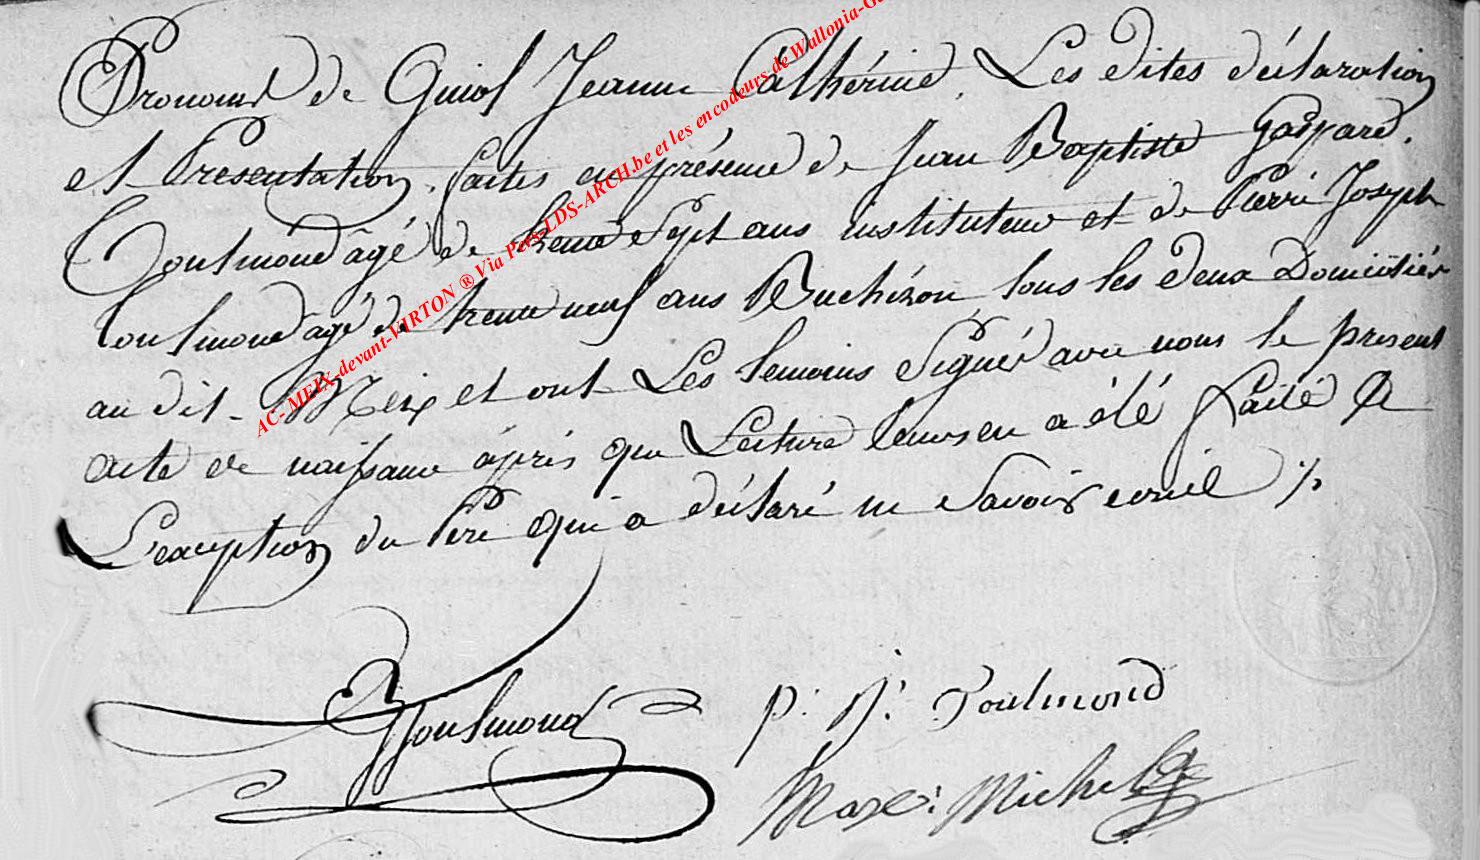 Prenoms de Guiot Jeanne Cathérine. Les dites déclaration
et Présentation faites en présence de Jean Baptiste Gaspard
Toulmond âgé de trente Sept ans instituteur et de Pierre Joseph
Toulmond âgé de trente neuf ans Bucheron tous les deux Domiciliés
au dit Meix et ont Les temoins Signé avec nous le present
acte de naissance après que Lecture leurs en a été faite A
L'exception du Pere qui a déclaré ne savoir ecrire
Toulmond
P. J. Toulmond
Max: Michel
AC- MEIX-devant-VIRTON ® Via Pers-LDS-ARCH.be et les encodeurs de Wallonia-G